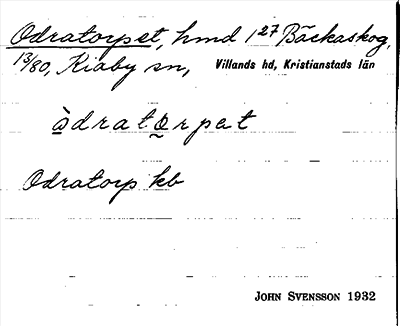 Odratorpet, hmd 1²⁷ Bäckaskog,
13/80, Kiaby sn, Villands hd, Kristianstads län
àdratǫrpet
Odratorp kb
JOHN SVENSSON 1932